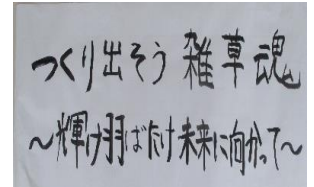 つくり出そう 雑草魂
～輝け羽ばたけ未来に向かって～